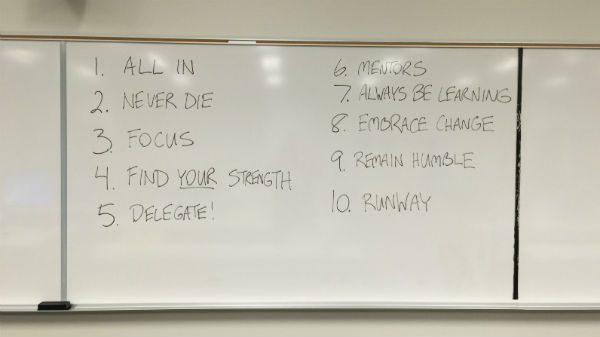 1. ALL IN
2. NEVER DIE
3. FOCUS
4. FIND YOUR STRENGTH
5. DELEGATE!
6. MENTORS
7. ALWAYS BE LEARNING
8. EMBRACE CHANGE
9. REMAIN HUMBLE
10. RUNWAY